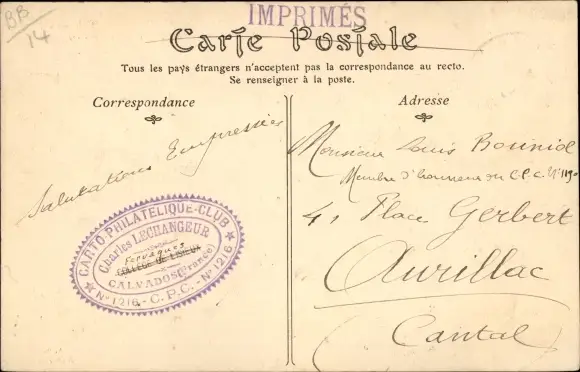 BB
14
IMPRIMÉS
Carte Postale
Tous les pays étrangers n'acceptent pas la correspondance au recto.
Se renseigner à la poste.
Correspondance
Salutations Empressées
CARTO-PHILATELIQUE-CLUB
Charles LECHANGEUR
Fervaques
COLLEGE DE LISIEUX
CALVADOS (France)
N° 1216 - C.P.C. - N° 1216
Adresse
Monsieur Louis Bouniol
Membre d'honneur du C.P.C. N° 1190
41 Place Gerbert
Aurillac
Cantal